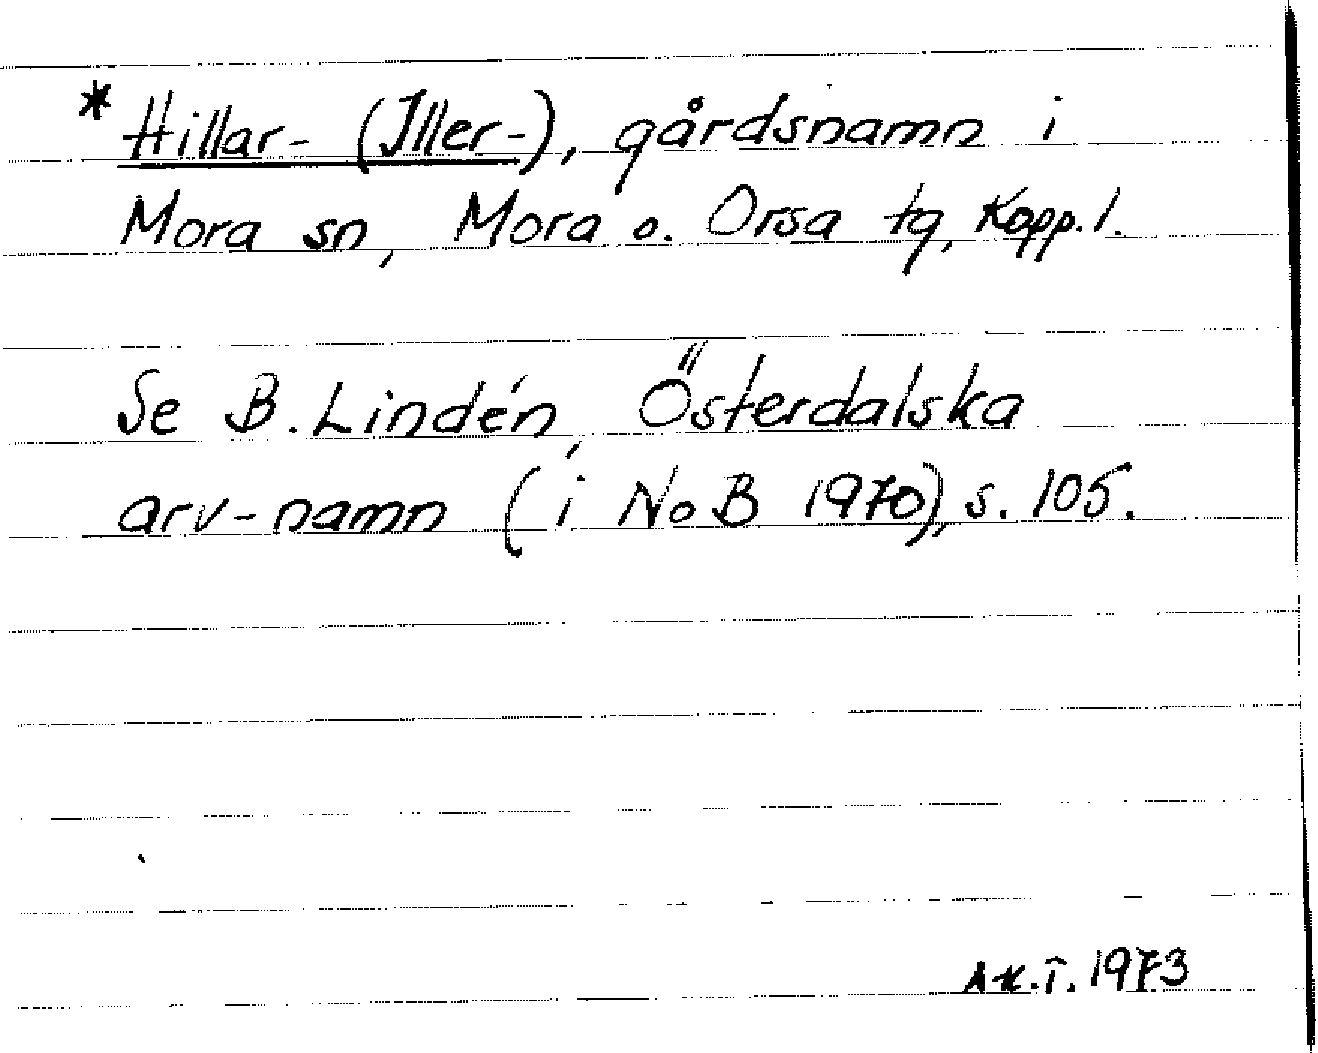 * Hillar- (Iller-), gårdsnamn i
Mora sn, Mora o. Orsa tg, Kopp. l.
Se B. Lindén, Österdalska
arv-namn (i NoB 1970), s. 105.
1973